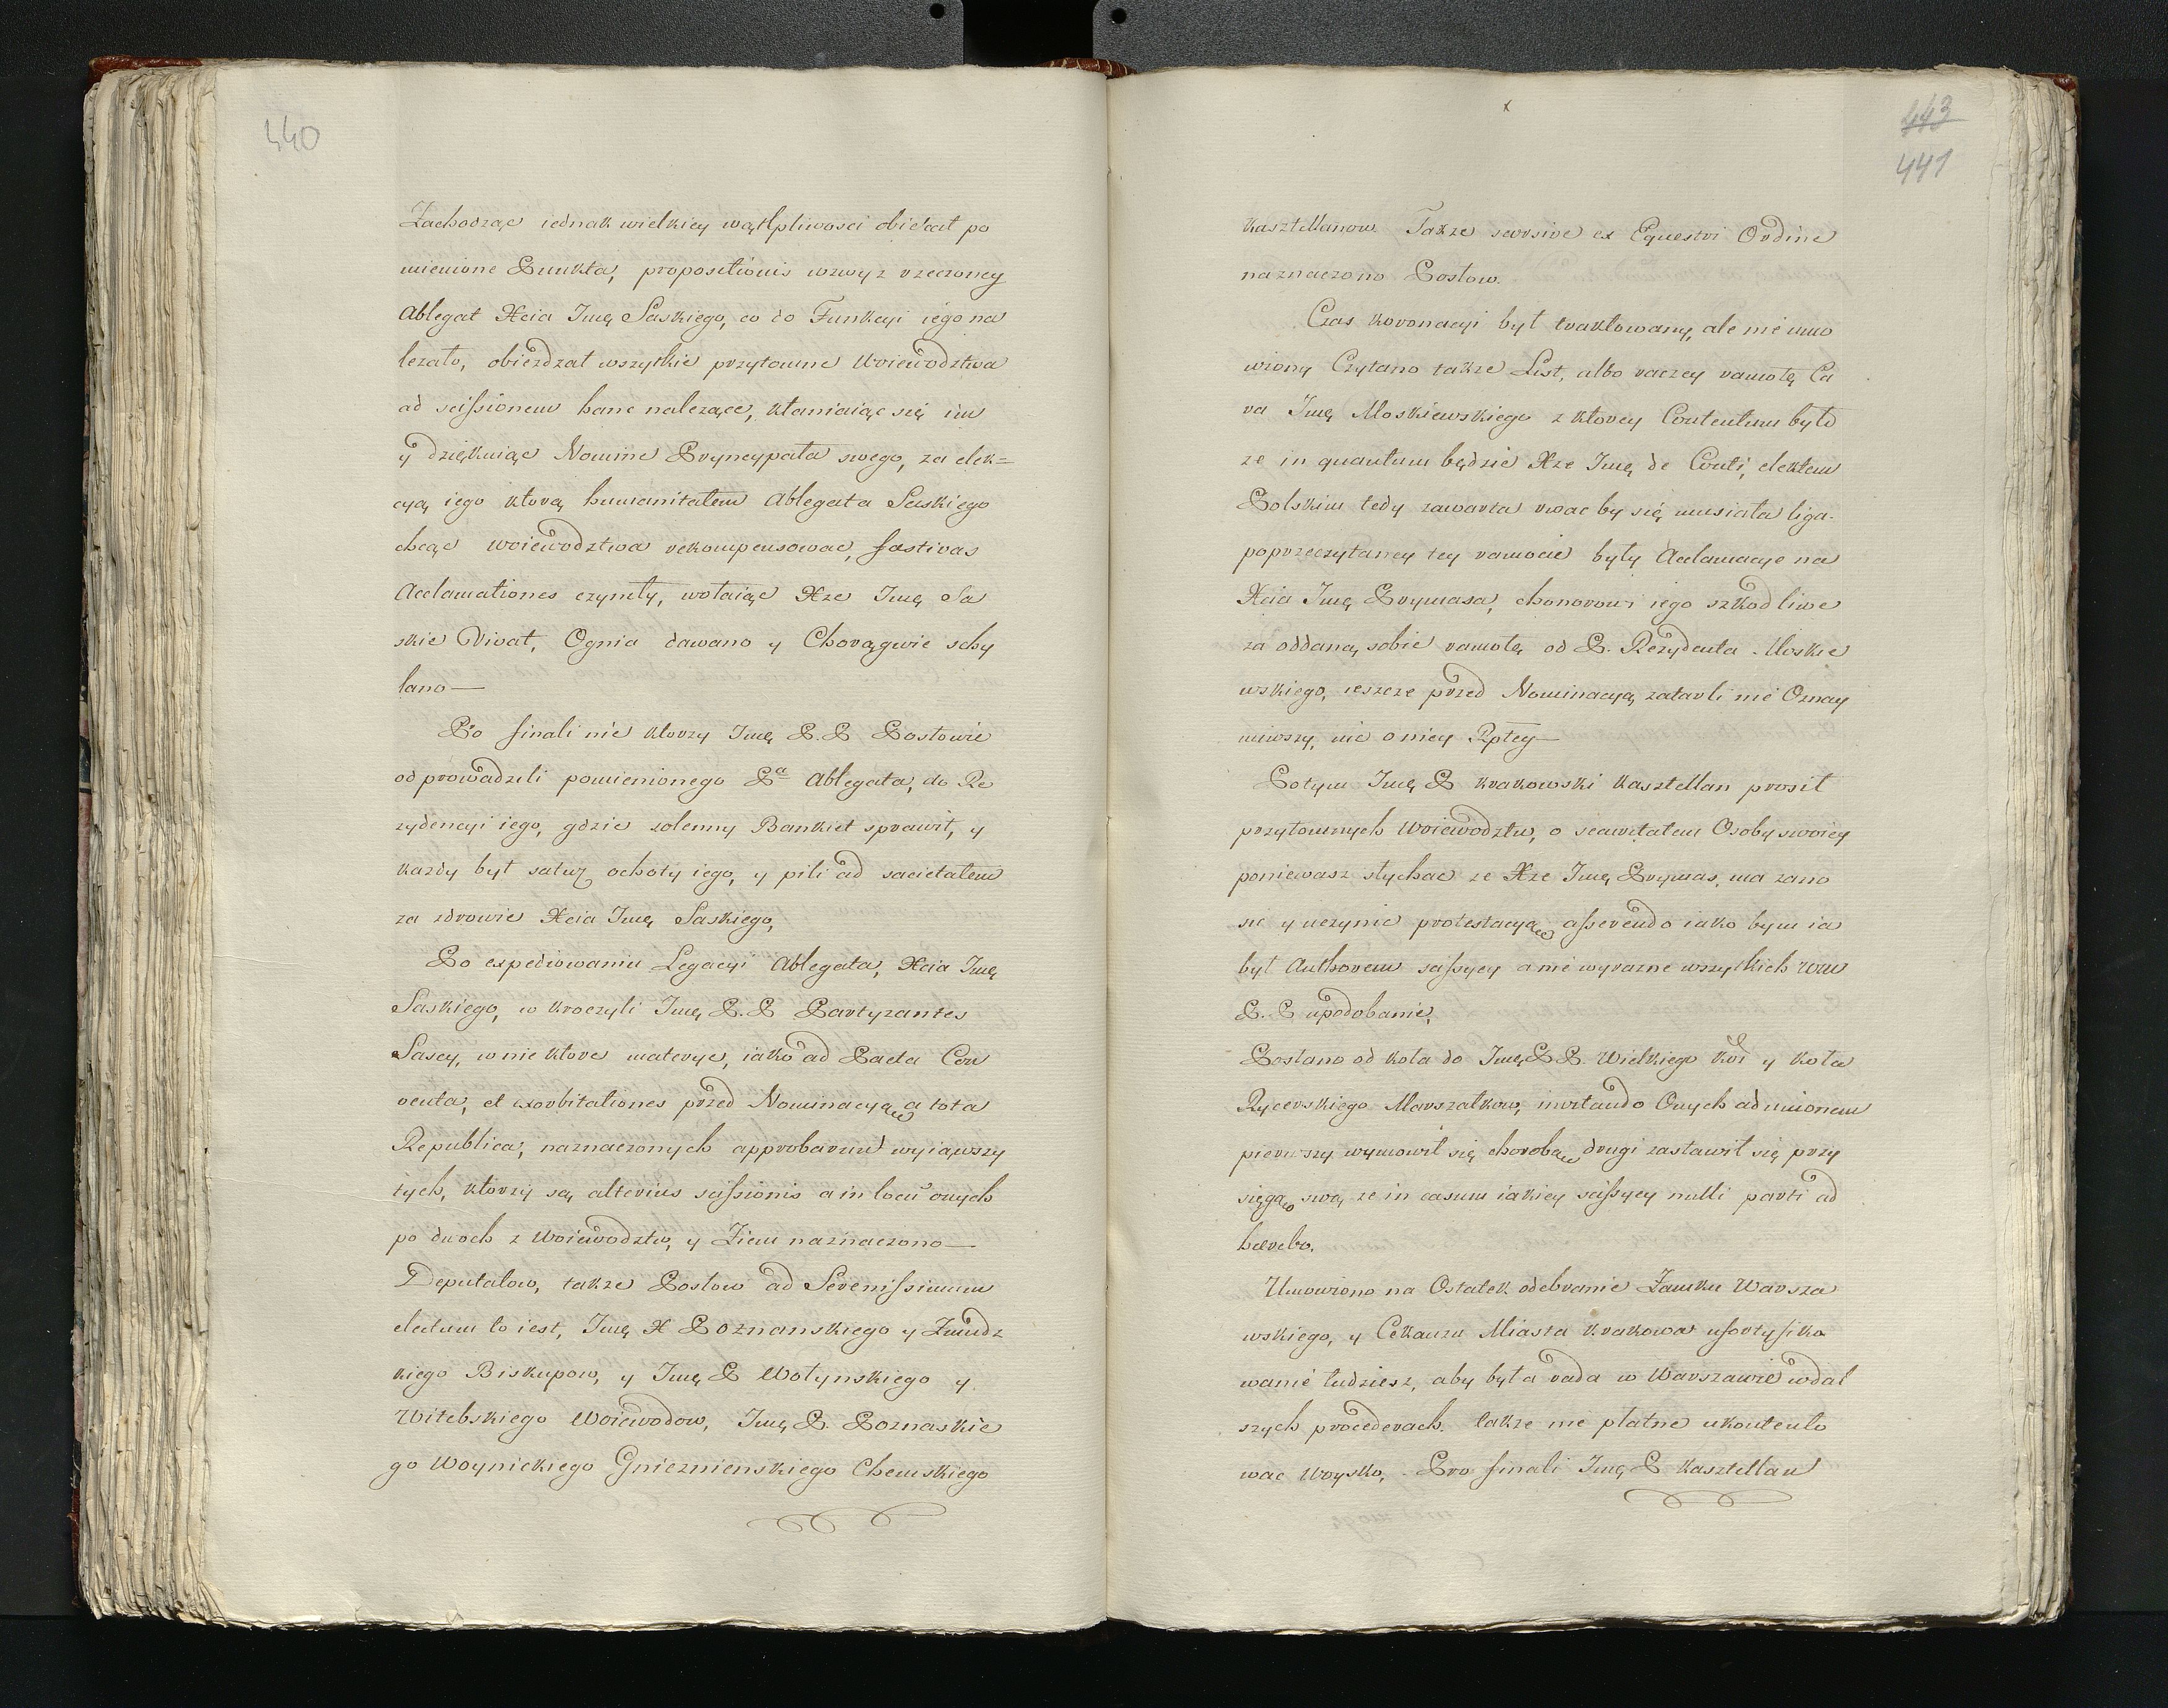 440
Zachodząc iednak wielkiey wątpliwosci obiecał po
mienione Punkta, propositionis wzwyz rzeczoney
Ablegat Xcia Jmę Saskiego, co do Funkcyi iego na
lezało, obiezdzał wszytkie przytomne Woiewodztwa
ad scissionem hanc nalezące, kłaniaiąc się im
y dziękuiąc Nomine Pryncypała swego, za elek=
cyą iego ktorą humanitatem Ablegata Saskiego
chcąc woiewodztwa rekompensowac, fastivas
Acclamationes czyniły, wołaiąc Xze Jmę Sa
skie Vivat, Ognia dawano y Chorągwie schy
lano —
Po finali nie ktorzy Jmę P.P Posłowie
odprowadzili pomienionego Pa Ablegata, do Re
zydencyi iego, gdzie solenny Bankiet sprawił, y
kazdy był satur ochoty iego, y pili ad sacietatem
za zdrowie Xcia Jmę Saskiego,
Po expediowaniu Legacyi Ablegata, Xcia Jmę
Saskiego, w kroczyli Jmę P.P Partyzantes
Sascy, w nie ktore materye, iako ad Pacta Con
venta, et exorbitationes przed Nominacyą a tota
Republica, naznaczonych approbarunt wyiąwszy
tych, ktorzy są alterius scissionis a in locu onych
po dwoch z Woiewodztw, y Ziem naznaczono —
Deputatow, takze Posłow ad Serenissimum
electum to iest, Jmę X Poznanskiego y Zmudz
kiego Biskupow, y Jmę P Wołynskiego y
Witebskiego Woiewodow, Jmę P. Poznaskie
go Woynickiego Gnieznienskiego Chemskiego
443
441
kasztellanow Takze seorsive ex Equestri Ordine
naznaczono Posłow.
Czas koronacyi był traktowany, ale nie umo
wiony Czytano takze List, albo raczey ramotę Ca
ra Jmę Moskiewskiego z ktorey Contentum było
ze in quantum będzie Xze Jmę de Conti, elektem
Polskim tedy zawarta rwac by się musiała liga.
poprzeczytaney tey ramocie były Acclamacye na
Xcia Jmę Prymasa, chonorowi iego szkodliwe
za oddaną sobie ramotę od P. Rezydenta Moskie
wskiego, ieszcze przed Nominacyą zatarli nie Oznay
miwszy, nie o niey Rptey —
Potym Jmę P krakowski kasztellan prosił
przytomnych Woiewodztw, o securitatem Osoby swoiey
poniewasz słychac ze Xze Jmę Prymas, ma zano
sic y uczynic protestacyą asserendo iako bym ia
był Authorem scissyey a nie wyrazne wszytkich Ww
P.P upodobanie,
Posłano od koła do Jmę P.P. Wielkiego koi y koła
Rycerskiego Marszałkow, invitando Onych ad unionem
pierwszy wymowił się chorobą drugi zastawił się przy
sięgą swą ze in casum iakiey scissyey nulli parti ad
hærebo.
Umowiono na Ostatek odebranie Zamku Warsza
wskiego, y Cekauzu Miasta krakowa ufortyfiko
wanie tudziesz, aby była rada w Warszawie wdal
szych procederach. takze nie płatne ukontento
wac Woysko, Pro finali Jmę P kasztellan